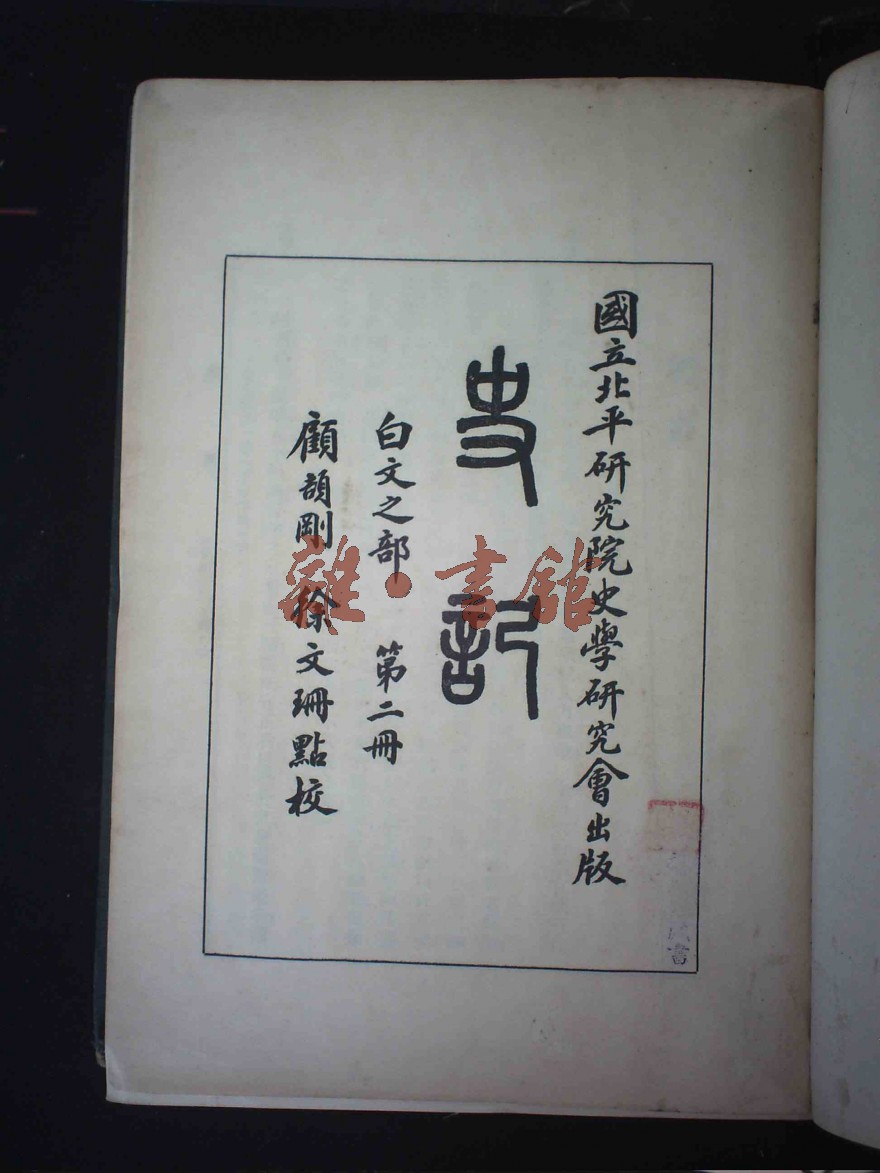 國立北平研究院史學研究會出版
史記
白文之部 第二冊
顧頡剛 徐文珊點校
雜·書館